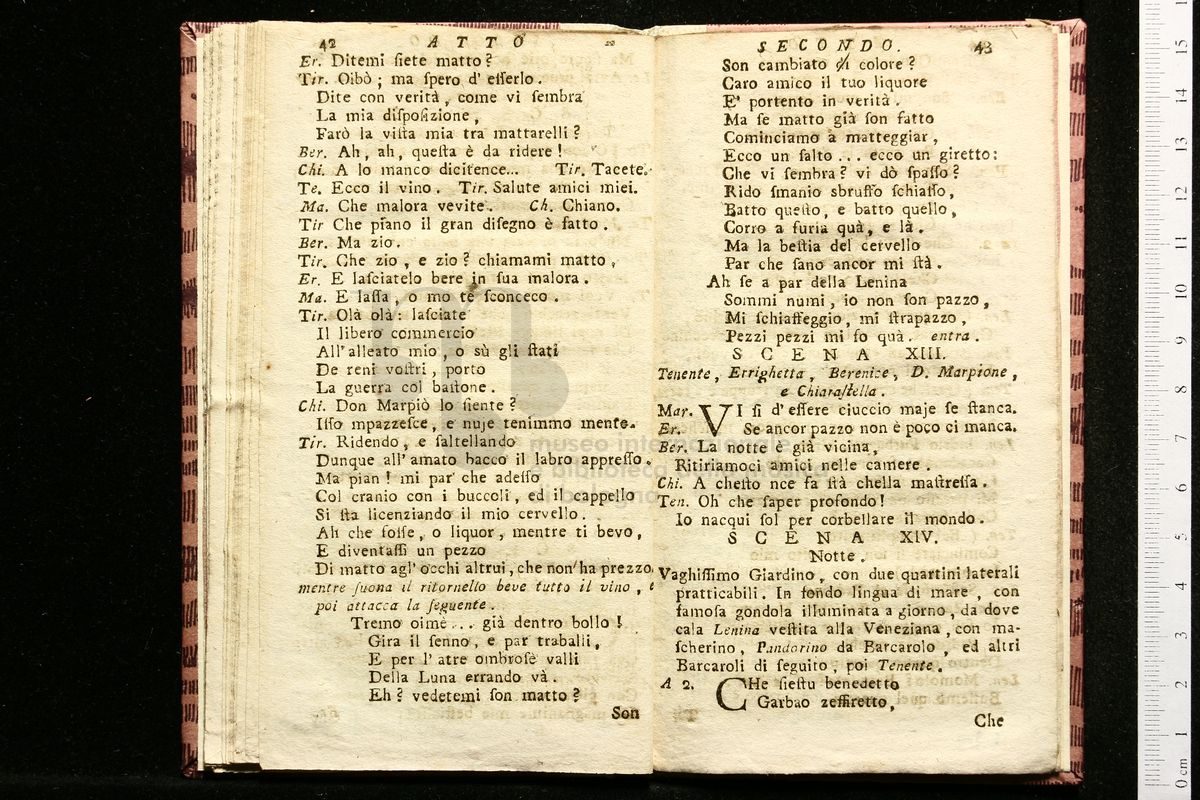 42 ATTO
Er. Ditemi ſiete matto?
Tir. Oibò; ma ſpero d' eſſerlo.
Dite con verità, come vi ſembra
La mia diſpoſizione,
Farò la viſta mia tra mattarelli?
Ber. Ah, ah, queſta è da ridere!
Chi. A lo manco dicitence... Tir. Tacete.
Te. Ecco il vino. Tir. Salute amici miei.
Ma. Che malora vevite. Ch. Chiano.
Tir Che piano il gran diſegno è fatto.
Ber. Ma zio.
Tir. Che zio, e zio? chiamami matto,
Er. E laſciatelo bere in ſua malora.
Ma. E laſſa, o mo te ſconceco.
Tir. Olà olà: laſciate
Il libero commercio
All' alleato mio, o sù gli ſtati
De reni voſtri, porto
La guerra col baſtone.
Chi. Don Marpiò lo ſiente?
Iſſo mpazzeſce, e nuje tenimmo mente.
Tir. Ridendo, e ſaltellando
Dunque all' amato bacco il labro appreſſo.
Ma pian! mi par che adeſſo
Col cranio con i buccoli, ed il cappello
Si ſta licenziando il mio cervello.
Ah che foſſe, o liquor, mentre ti bevo,
E diventaſſi un pezzo
Di matto agl' occhi altrui, che non ha prezzo.
mentre ſuona il ritornello beve tutto il vino, e
poi attacca la ſeguente.
Tremo oimè... già dentro bollo!
Gira il ſenno, e par traballi,
E per l' atre ombroſe valli
Della Luna errando và.
Eh? vedetemi ſon matto?
Son
SECONDO. 43
Son cambiato di colore?
Caro amico il tuo liquore
E' portento in verità.
Ma ſe matto già ſon fatto
Cominciamo a matteggiar,
Ecco un ſalto... ecco un giretto:
Che vi ſembra? vi dò ſpaſſo?
Rido ſmanio sbruffo ſchiaſſo,
Batto queſto, e batto quello,
Corro a furia quà, e là.
Ma la beſtia del cervello
Par che ſano ancor mi ſtà.
Ah ſe a par della Lenina
Sommi numi, io non ſon pazzo,
Mi ſchiaffeggio, mi ſtrapazzo,
Pezzi pezzi mi fo quà. entra.
SCENA XIII.
Tenente, Errighetta, Berenice, D. Marpione,
e Chiaraſtella.
Mar. VI ſi d' eſſere ciuccio maje ſe ſtanca.
Er. Se ancor pazzo non è poco ci manca.
Ber. La notte è già vicina,
Ritiriamoci amici nelle camere.
Chi. A cheſto nce fa ſtà chella maſtreſſa.
Ten. Oh che ſaper profondo!
Io nacqui ſol per corbellare il mondo.
SCENA XIV.
Notte.
Vaghiſſimo Giardino, con due quartini laterali
pratticabili. In fondo lingua di mare, con
famoſa gondola illuminata a giorno, da dove
cala Lenina veſtita alla Veneziana, con ma-
ſcherino, Pandorino da Barcarolo, ed altri
Barcaroli di ſeguito, poi Tenente.
A 2. CHe ſieſtu benedetto
Garbao zeffiretto,
Che
museo internazionale
e biblioteca della musica
di bologna
15
14
13
12
11
10
9
8
7
6
5
4
3
2
1
0 cm